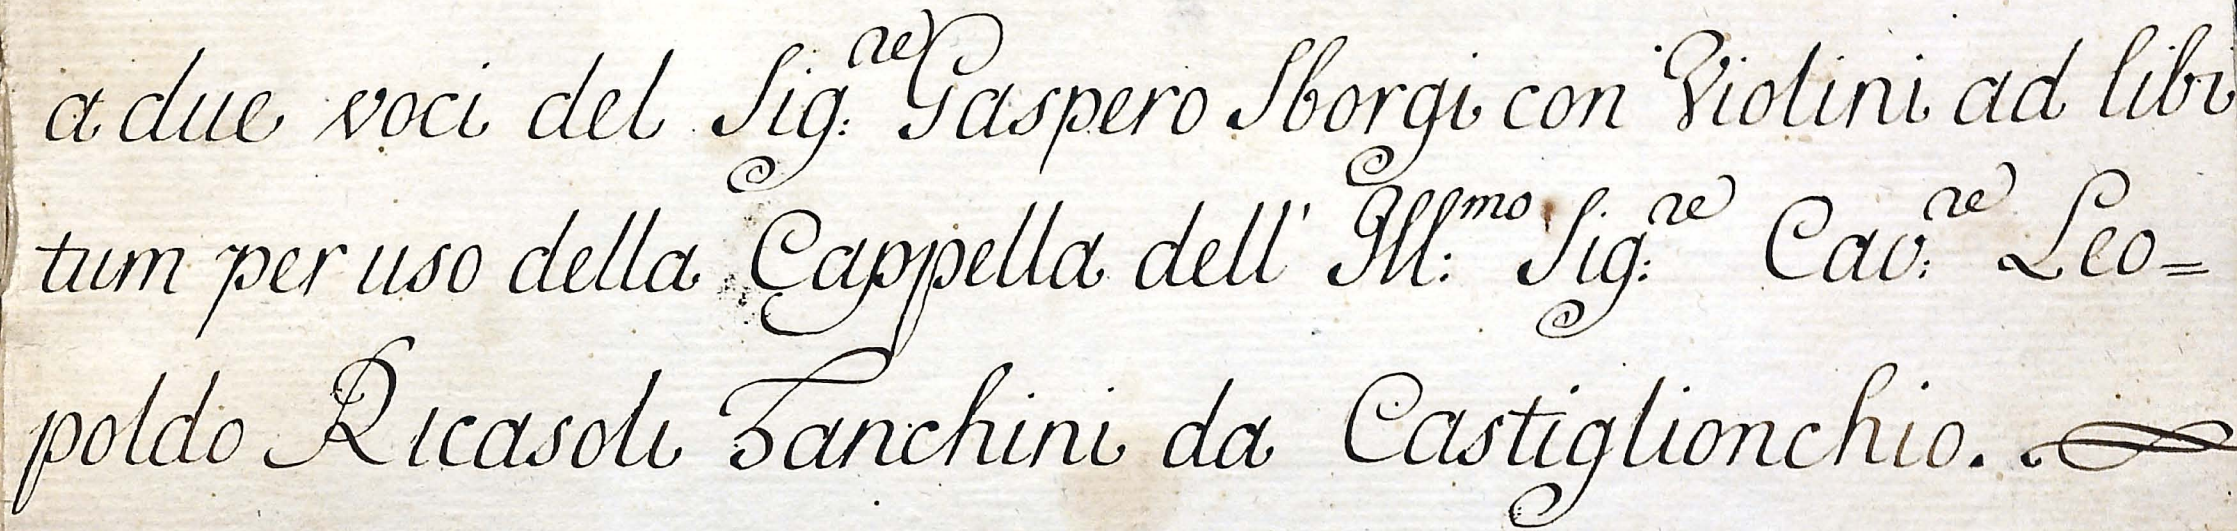 a due voci del Sig:re Gaspero Sborgi con Violini ad libi
tum per uso della Cappella dell' Ill:mo Sig:re Cav:re Leo=
poldo Ricasoli Zanchini da Castiglionchio.